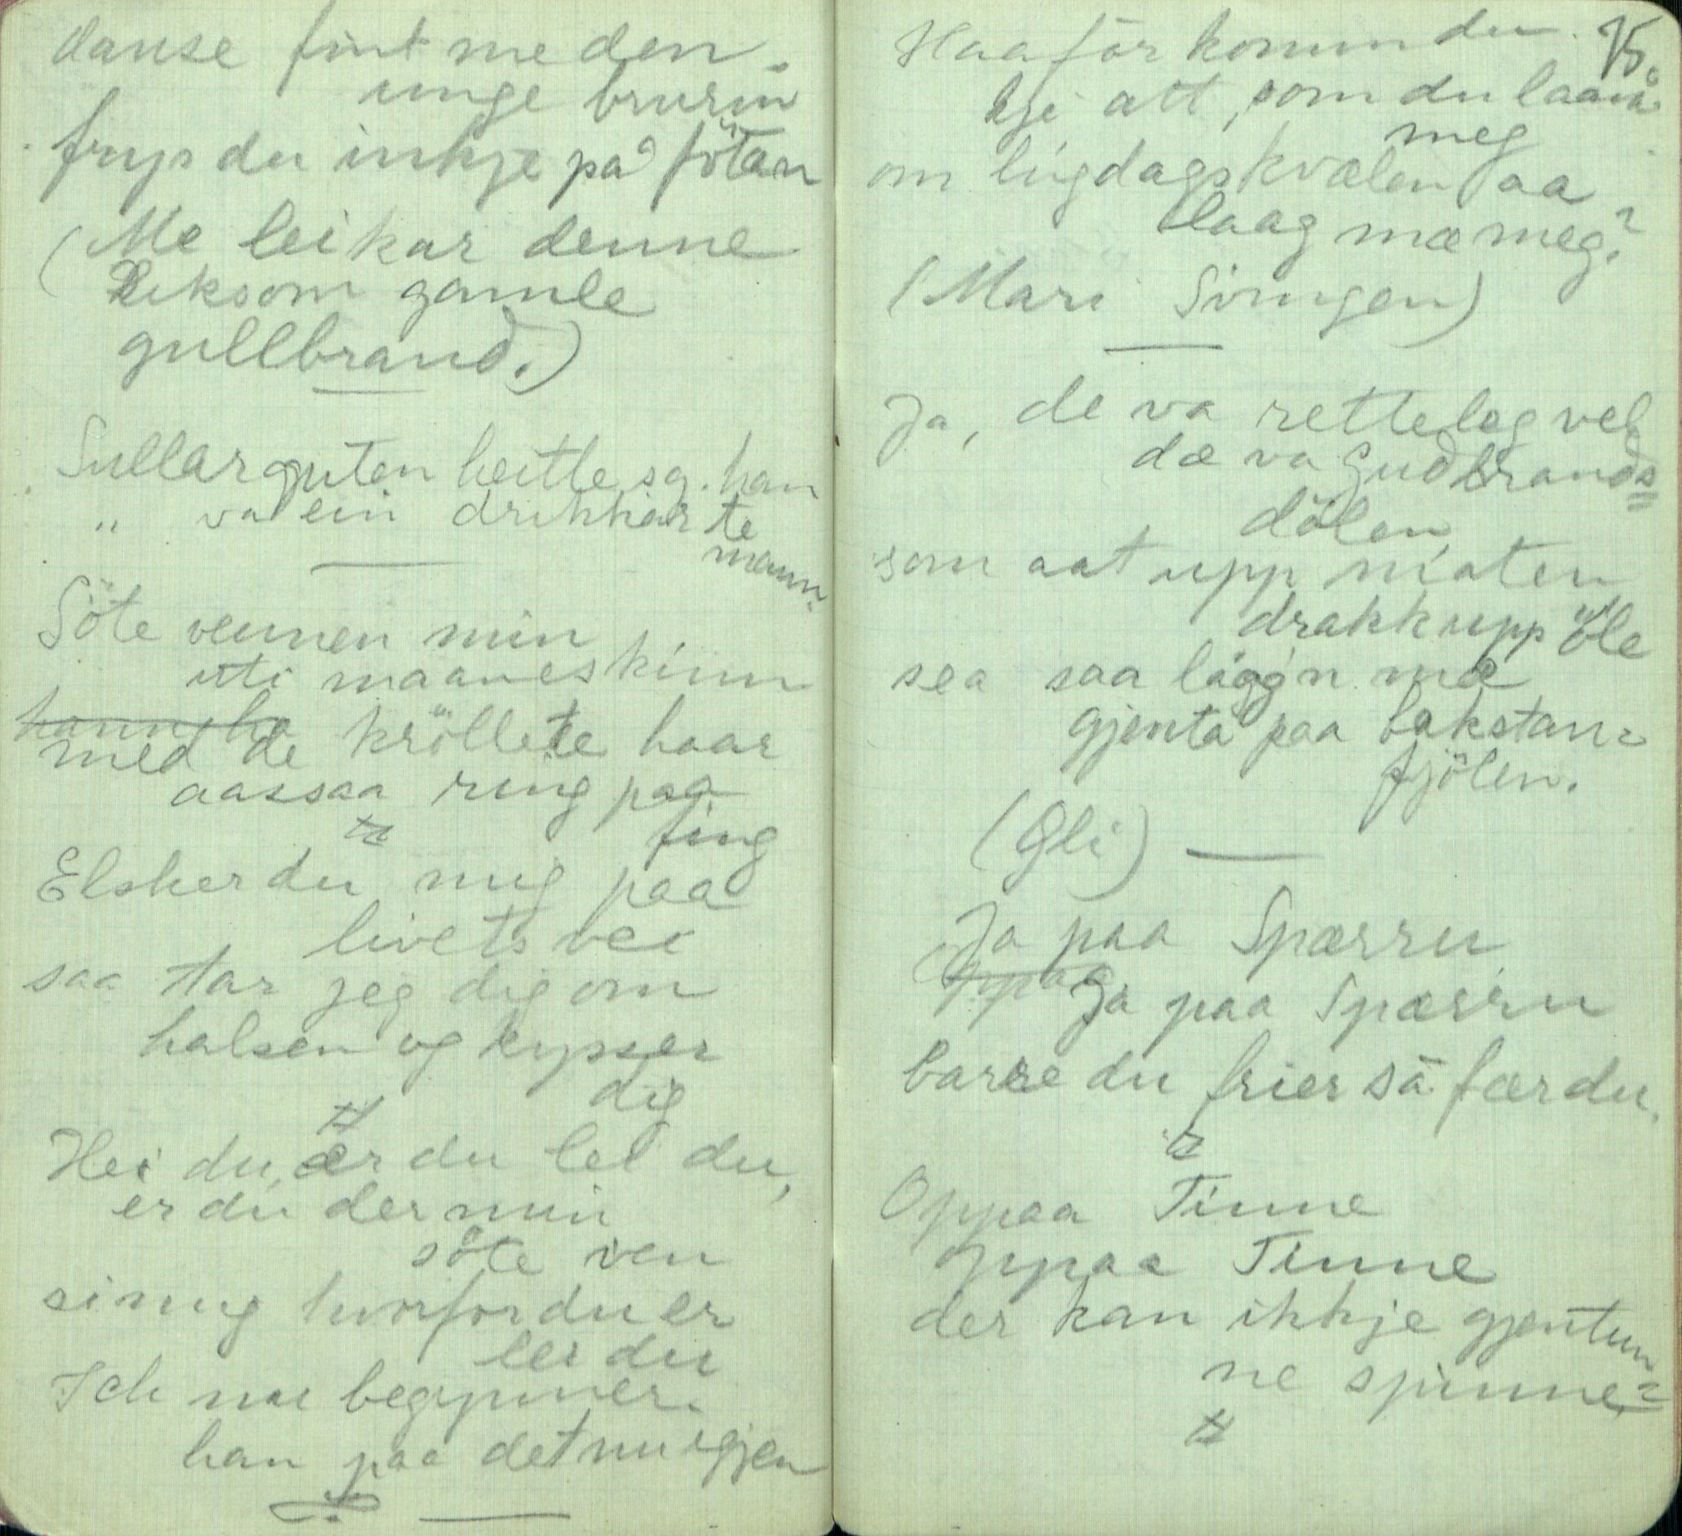 danse fint me den
unge brurin
frys du inkje på fötan
(Me leikar denne
liksom gamle
gullbrand.)
Sullarguten heitte eg. han
" va ein drikkar te
mann.
Söte vennen min
uti maaneskinn
med de kröllete haar
aassaa ring paa
fing
Elsker du mig paa
livets vei
saa tar jeg dig om
halsen og kysser
dig
Hei du, ær du lel du,
er du der min
söte ven
si mig hvorfor du er
lei du
Ich nu begynner
han paa det nu igjen
Haaför komm du
kje att, som du laava
meg
om lugdagskvælen aa
laag mæ meg?
(Mari Svingen)
Ja, de va retteleg vel
dæ va Gudbrands=
dölen,
som aat upp maten
drakk upp öle
sea saa låg'n mæ
gjenta paa bakstan=
fjölen.
(Gli)
Ja paa Spærru
Ja paa Spærru
barre du frier så fær du.
Oppaa Tinne
oppaa Tinne
der kan ikkje gjentun=
ne spinne